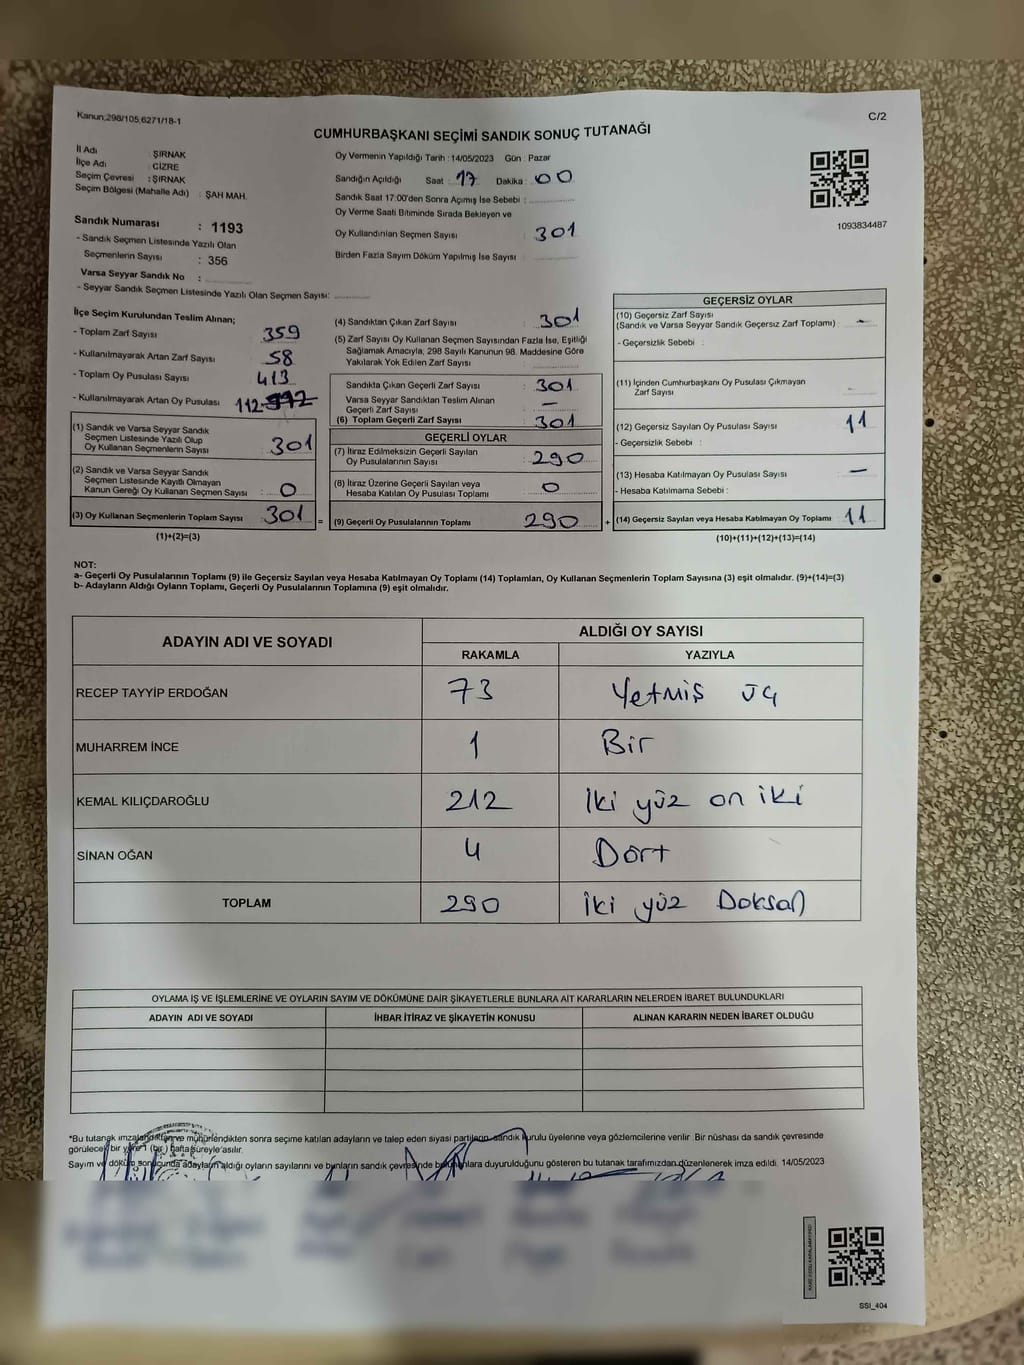 Kanun,298/105,6271/18-1
C/2
CUMHURBAŞKANI SEÇİMİ SANDIK SONUÇ TUTANAĞI
İl Adı : ŞIRNAK
İlçe Adı : CİZRE
Seçim Çevresi : ŞIRNAK
Seçim Bölgesi (Mahalle Adı) : ŞAH MAH.
Sandık Numarası : 1193
- Sandık Seçmen Listesinde Yazılı Olan
Seçmenlerin Sayısı : 356
Varsa Seyyar Sandık No :
- Seyyar Sandık Seçmen Listesinde Yazılı Olan Seçmen Sayısı:
Oy Vermenin Yapıldığı Tarih : 14/05/2023 Gün : Pazar
Sandığın Açıldığı Saat : 17 Dakika : 00
Sandık Saat 17:00'den Sonra Açımış İse Sebebi :
Oy Verme Saati Bitiminde Sırada Bekleyen ve
Oy Kullandırılan Seçmen Sayısı : 301
Birden Fazla Sayım Döküm Yapılmış İse Sayısı
1093834487
İlçe Seçim Kurulundan Teslim Alınan;
- Toplam Zarf Sayısı 359
- Kullanılmayarak Artan Zarf Sayısı 58
- Toplam Oy Pusulası Sayısı 413
- Kullanılmayarak Artan Oy Pusulası 112
(1) Sandık ve Varsa Seyyar Sandık
Seçmen Listesinde Yazılı Olup
Oy Kullanan Seçmenlerin Sayısı : 301
(2) Sandık ve Varsa Seyyar Sandık
Seçmen Listesinde Kayıtlı Olmayan
Kanun Gereği Oy Kullanan Seçmen Sayısı : 0
(3) Oy Kullanan Seçmenlerin Toplam Sayısı 301 =
(1)+(2)=(3)
(4) Sandıktan Çıkan Zarf Sayısı : 301
(5) Zarf Sayısı Oy Kullanan Seçmen Sayısından Fazla İse, Eşitliği
Sağlamak Amacıyla, 298 Sayılı Kanunun 98. Maddesine Göre
Yakılarak Yok Edilen Zarf Sayısı :
Sandıkta Çıkan Geçerli Zarf Sayısı : 301
Varsa Seyyar Sandıktan Teslim Alınan
Geçerli Zarf Sayısı : -
(6) Toplam Geçerli Zarf Sayısı : 301
GEÇERLİ OYLAR
(7) İtiraz Edilmeksizin Geçerli Sayılan
Oy Pusulalarının Sayısı : 290
(8) İtiraz Üzerine Geçerli Sayılan veya
Hesaba Katılan Oy Pusulası Toplamı : 0
(9) Geçerli Oy Pusulalarının Toplamı : 290 +
GEÇERSİZ OYLAR
(10) Geçersiz Zarf Sayısı
(Sandık ve Varsa Seyyar Sandık Geçersiz Zarf Toplamı) : -
- Geçersizlik Sebebi :
(11) İçinden Cumhurbaşkanı Oy Pusulası Çıkmayan
Zarf Sayısı
(12) Geçersiz Sayılan Oy Pusulası Sayısı : 11
- Geçersizlik Sebebi :
(13) Hesaba Katılmayan Oy Pusulası Sayısı : -
- Hesaba Katılmama Sebebi :
(14) Geçersiz Sayılan veya Hesaba Katılmayan Oy Toplamı : 11
(10)+(11)+(12)+(13)=(14)
NOT:
a- Geçerli Oy Pusulalarının Toplamı (9) ile Geçersiz Sayılan veya Hesaba Katılmayan Oy Toplamı (14) Toplamları, Oy Kullanan Seçmenlerin Toplam Sayısına (3) eşit olmalıdır. (9)+(14)=(3)
b- Adayların Aldığı Oyların Toplamı, Geçerli Oy Pusulalarının Toplamına (9) eşit olmalıdır.
ADAYIN ADI VE SOYADI ALDIĞI OY SAYISI
RAKAMLA YAZIYLA
RECEP TAYYİP ERDOĞAN 73 Yetmiş üç
MUHARREM İNCE 1 Bir
KEMAL KILIÇDAROĞLU 212 İki yüz on iki
SİNAN OĞAN 4 Dört
TOPLAM 290 İki yüz Doksan
OYLAMA İŞ VE İŞLEMLERİNE VE OYLARIN SAYIM VE DÖKÜMÜNE DAİR ŞİKAYETLERLE BUNLARA AİT KARARLARIN NELERDEN İBARET BULUNDUKLARI
ADAYIN ADI VE SOYADI İHBAR İTİRAZ VE ŞİKAYETİN KONUSU ALINAN KARARIN NEDEN İBARET OLDUĞU
*Bu tutanak imzalandıktan ve mühürlendikten sonra seçime katılan adayların ve talep eden siyasi partilerin sandık kurulu üyelerine veya gözlemcilerine verilir. Bir nüshası da sandık çevresinde
görülecek bir yere 1 (bir) hafta süreyle asılır.
Sayım ve döküm sonucunda adayların aldığı oyların sayılarını ve bunların sandık çevresinde bulunanlara duyurulduğunu gösteren bu tutanak tarafımızdan düzenlenerek imza edildi. 14/05/2023
SSI_404